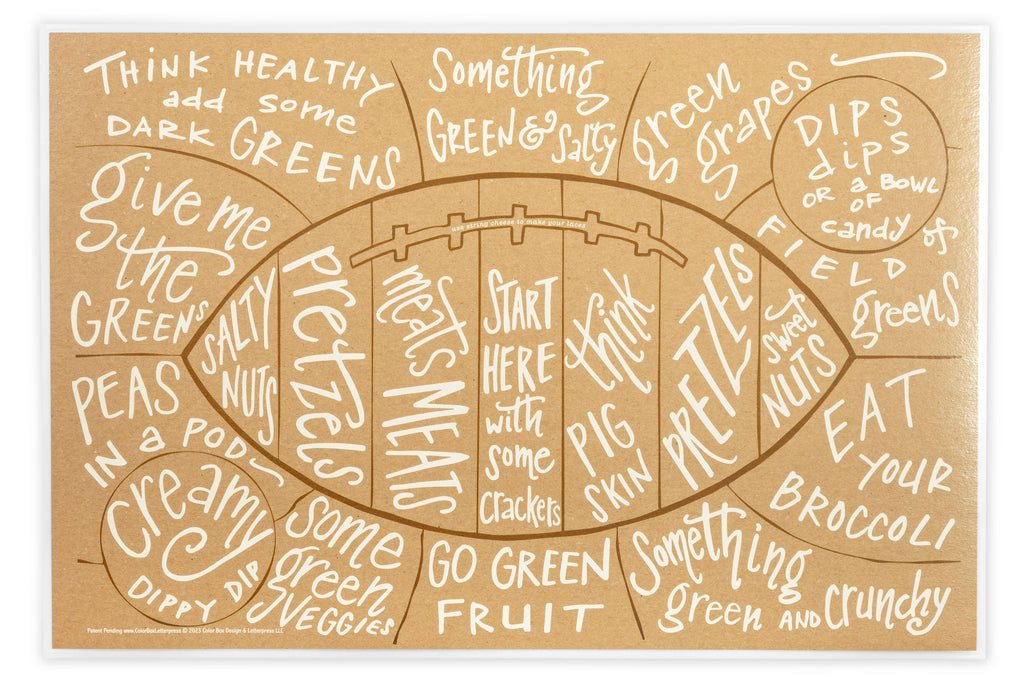 THINK HEALTHY
add some
DARK GREENS
Something
GREEN & Salty
green
grapes
DIPS
dips
OR a BOWL
OF
candy
give me
the
GREENS
use string cheese to make your laces
FIELD of
greens
SALTY
NUTS
PRETZELS
meats
MEATS
START
HERE
with
some
crackers
think
PIG
SKIN
PRETZELS
sweet
NUTS
PEAS
IN a POD
EAT
YOUR
BROCCOLI
Creamy
DIPPY DIP
some
green
VEGGIES
GO GREEN
FRUIT
Something
green AND crunchy
Patent Pending www.ColorBoxLetterpress © 2023 Color Box Design & Letterpress LLC